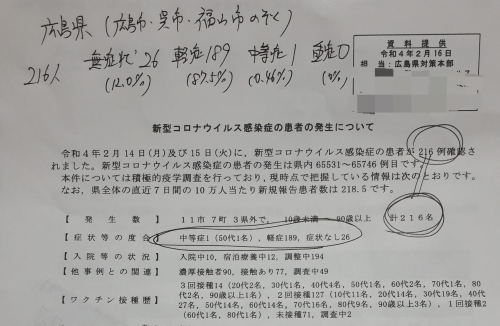 広島県(広島市・呉市・福山市のぞく)
216人 無症状26 軽症189 中等症1 重症0
(12.0%) (87.5%) (0.46%) (0%)
資料提供
令和4年2月16日
担当:広島県対策本部
新型コロナウイルス感染症の患者の発生について
令和4年2月14日(月)及び15日(火)に,新型コロナウイルス感染症の患者が216例確認さ
れました。新型コロナウイルス感染症の患者の発生は県内65531~65746例目です。
本件については積極的疫学調査を行っており,現時点で把握している情報は次のとおりです。
なお,県全体の直近7日間の10万人当たり新規報告患者数は218.5です。
【発生数】 11市7町3県外で,10歳未満~90歳以上 計216名
【症状等の度合】 中等症1(50代1名),軽症189,症状なし26
【入院等の状況】 入院中10,宿泊療養中12,調整中194
【他事例との関連】 濃厚接触者90,接触あり77,調査中49
【ワクチン接種歴】 3回接種14(20代2名,30代1名,40代4名,50代1名,60代2名,70代1名,8
代2名,90歳以上1名),2回接種127(10代11名,20代14名,30代19名,40代
27名,50代14名,60代14名,70代16名,80代9名,90歳以上3名),1回接種2
(60代1名,80代1名),未接種71,調査中2